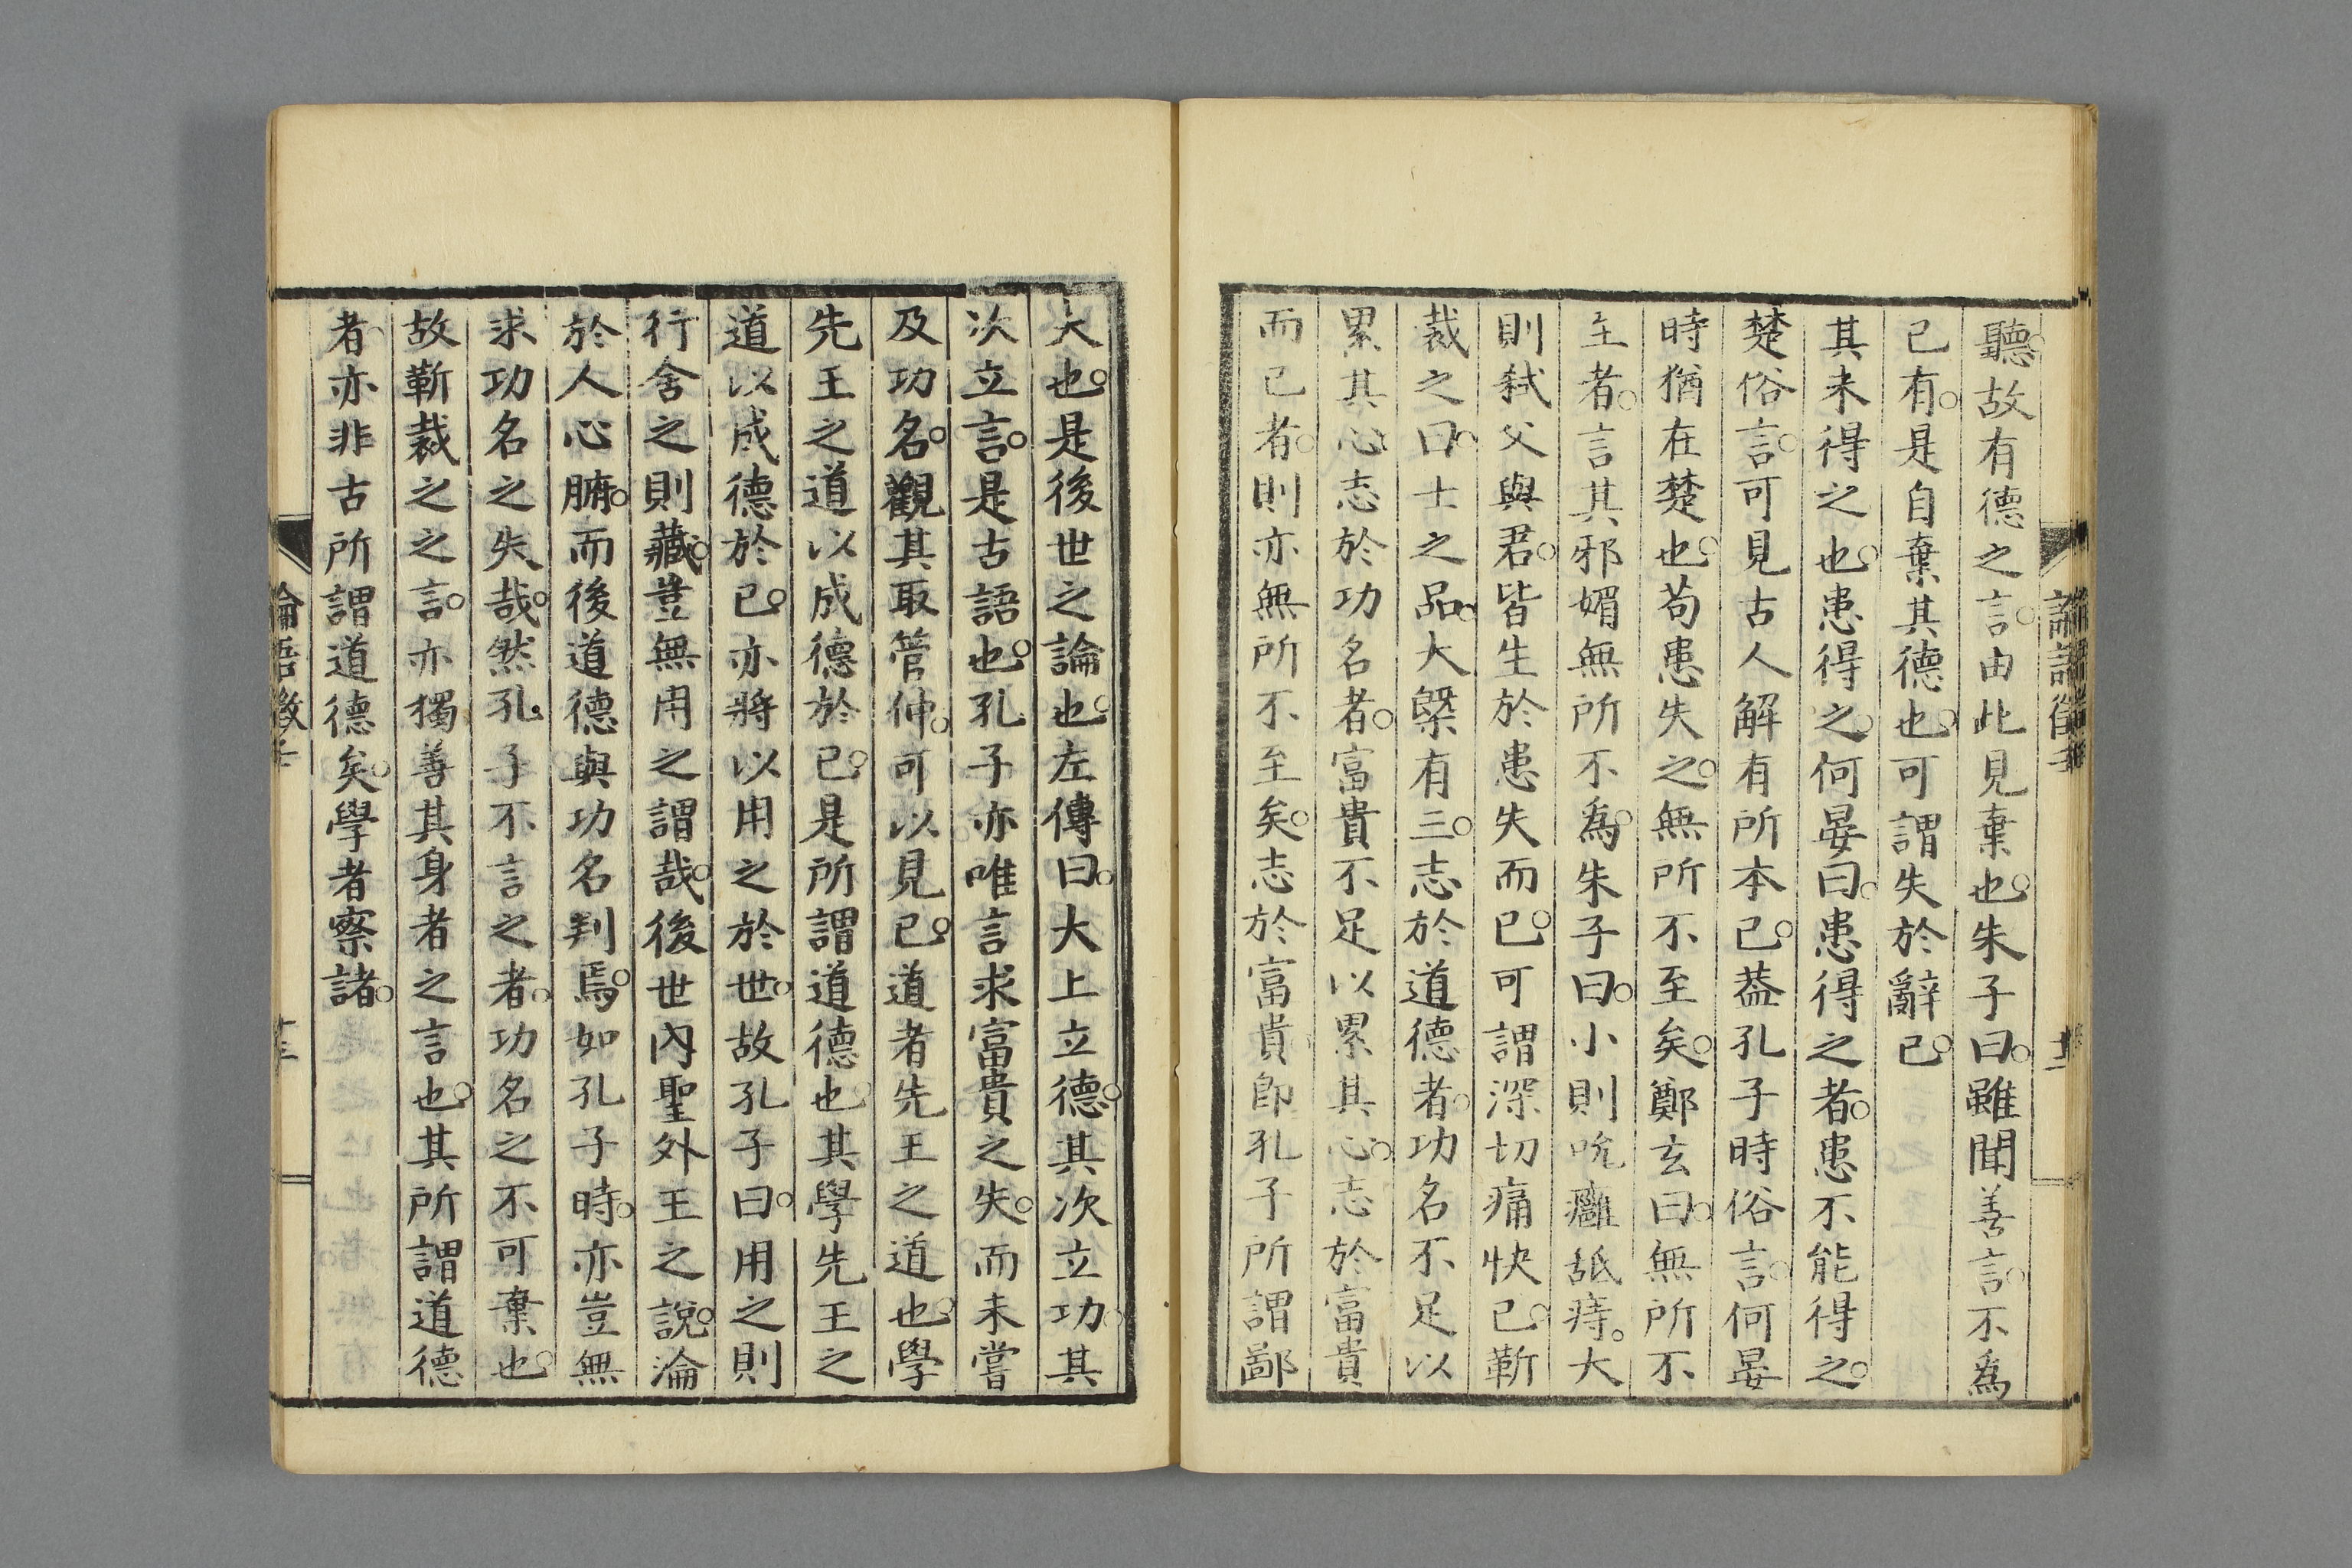 聽故有德之言由此見棄也朱子曰雖聞善言不爲
已有是自棄其德也可謂失於辭已
其未得之也患得之何晏曰患得之者患不能得之
楚俗言可見古人解有所本已葢孔子時俗言何晏
時猶在楚也苟患失之無所不至矣鄭玄曰無所不
至者言其邪媚無所不爲朱子曰小則吮癰舐痔大
則弑父與君皆生於患失而已可謂深切痛快已靳
裁之曰士之品大槩有三志於道德者功名不足以
累其心志於功名者富貴不足以累其心志於富貴
而已者則亦無所不至矣志於富貴卽孔子所謂鄙
大也是後世之論也左傳曰大上立德其次立功其
次立言是古語也孔子亦唯言求富貴之失而未嘗
及功名觀其取管仲可以見已道者先王之道也學
先王之道以成德於已是所謂道德也其學先王之
道以成德於已亦將以用之於世故孔子曰用之則
行舍之則藏豈無用之謂哉後世內聖外王之說淪
於人心腑而後道德與功名判焉如孔子時亦豈無
求功名之失哉然孔子不言之者功名之不可棄也
故靳裁之之言亦獨善其身者之言也其所謂道德
者亦非古所謂道德矣學者察諸
論語徵壬
十三